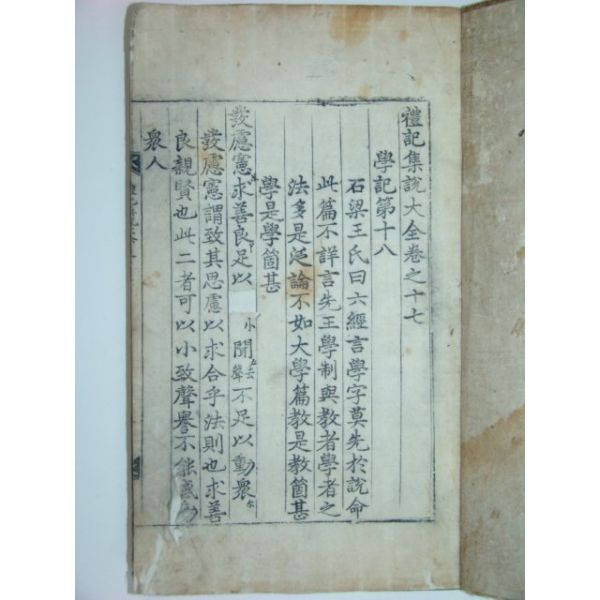 禮記集說大全卷之十七
學記第十八
石梁王氏曰六經言學字莫先於說命
此篇不詳言先王學制與教者學者之
法多是泛論不如大學篇教是教箇甚
學是學箇甚
發慮憲求善良足以小聞去聲不足以動衆
發慮憲謂致其思慮以求合乎法則也求善
良親賢也此二者可以小致聲譽不能感動
衆人